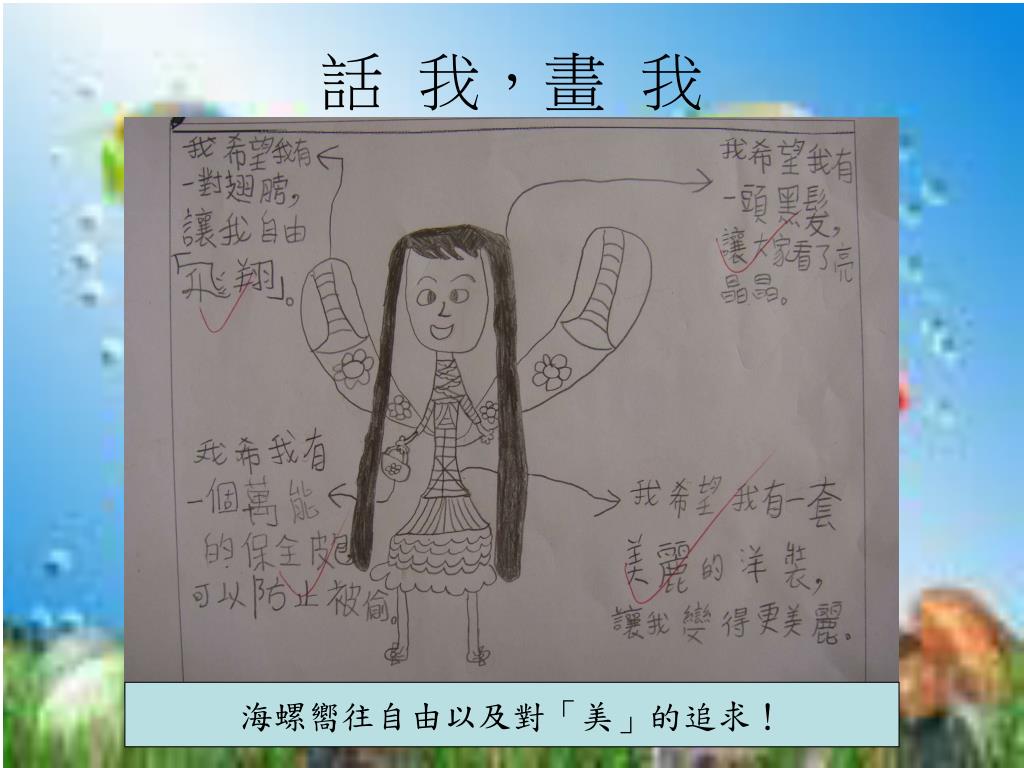 話 我，畫 我
我希望我有
一對翅膀，
讓我自由
「飛翔」。
我希望我有
一頭黑髮，
讓大家看了亮
晶晶。
我希我有
一個萬能
的保全皮包
可以防止被偷。
我希望我有一套
美麗的洋裝，
讓我變得更美麗。
海螺嚮往自由以及對「美」的追求！